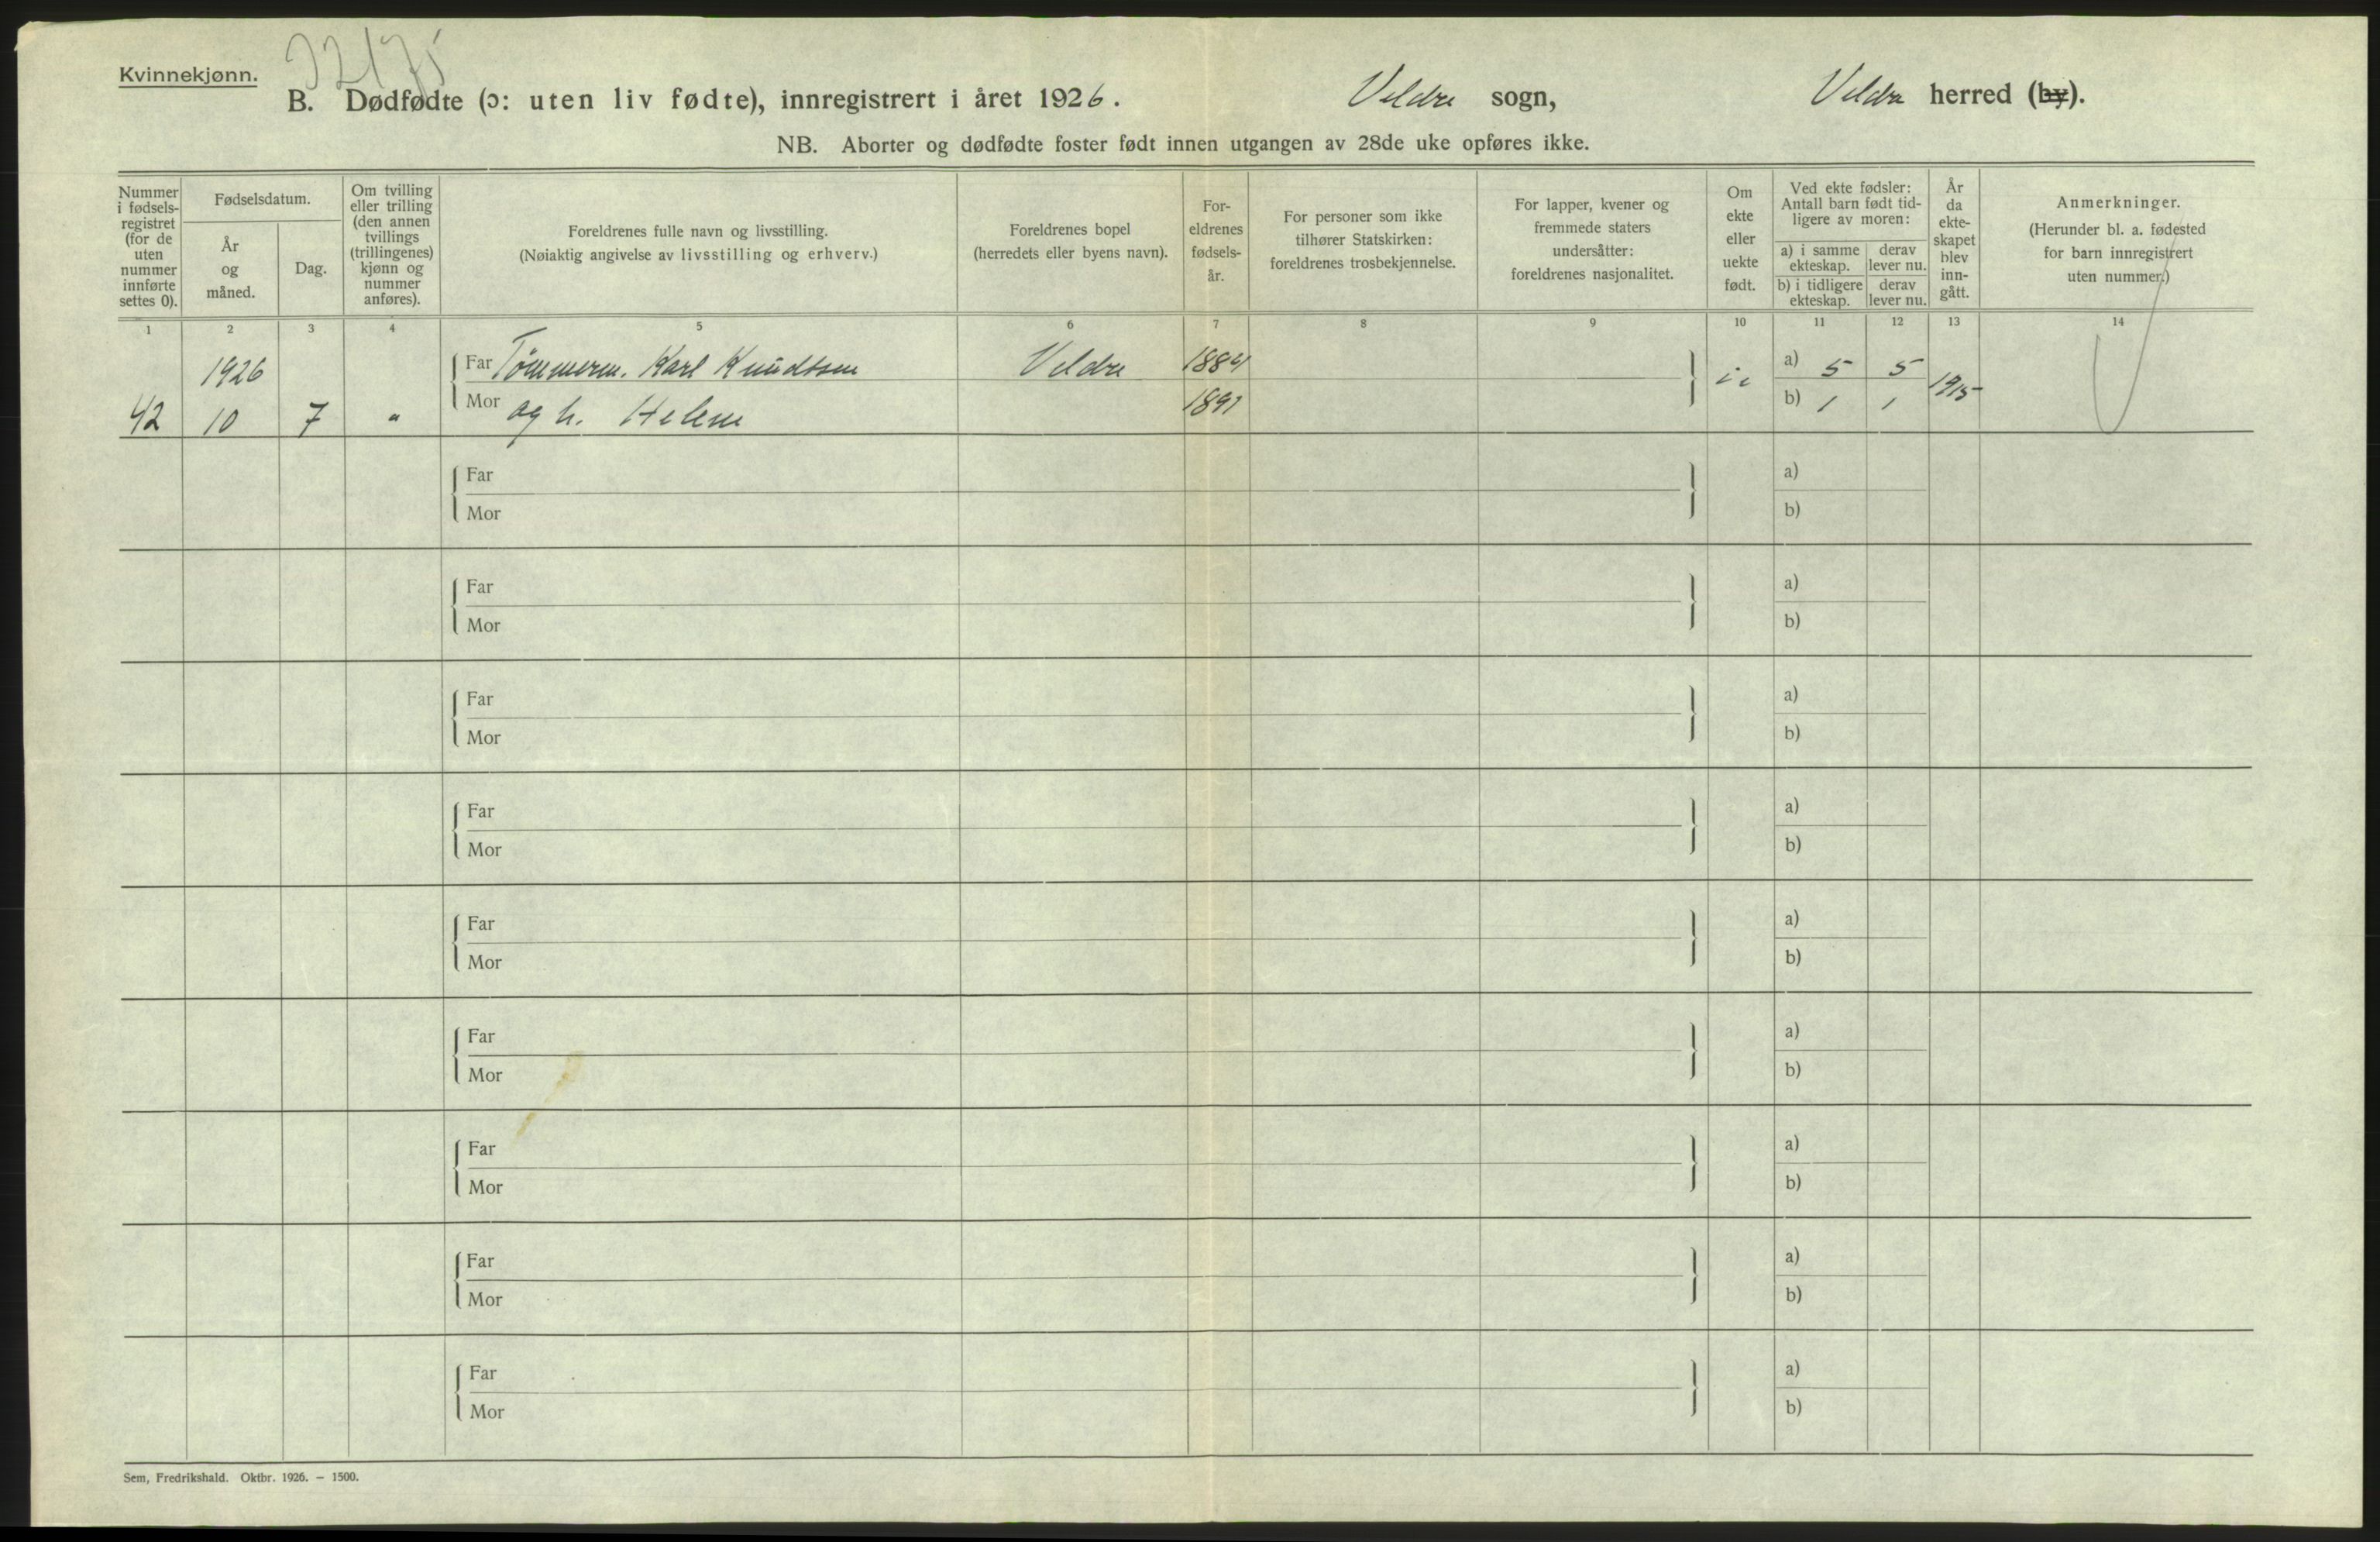 Kvinnekjønn.
B. Dødfødte (ɔ: uten liv fødte), innregistrert i året 1926. Veldre sogn, Veldre herred (by).
NB. Aborter og dødfødte foster født innen utgangen av 28de uke opføres ikke.
Nummer i fødsels-registret (for de uten nummer innførte settes 0).
Fødselsdatum.
År og måned.
Dag.
Om tvilling eller trilling (den annen tvillings (trillingenes) kjønn og nummer anføres).
Foreldrenes fulle navn og livsstilling.
(Nøiaktig angivelse av livsstilling og erhverv.)
Foreldrenes bopel
(herredets eller byens navn).
For-eldrenes fødsels-år.
For personer som ikke tilhører Statskirken: foreldrenes trosbekjennelse.
For lapper, kvener og fremmede staters undersåtter: foreldrenes nasjonalitet.
Om ekte eller uekte født.
Ved ekte fødsler: Antall barn født tid-ligere av moren:
a) i samme ekteskap.
derav lever nu.
b) i tidligere ekteskap.
derav lever nu.
År da ekte-skapet blev inn-gått.
Anmerkninger.
(Herunder bl. a. fødested for barn innregistrert uten nummer.)
1 2 3 4 5 6 7 8 9 10 11 12 13 14
1926 Far Tömmerm. Karl Knudtsen Veldre 1884 a) 5 5
42 10 7 " Mor og h. Helene 1891 b) / / 1915
Far a)
Mor b)
Far a)
Mor b)
Far a)
Mor b)
Far a)
Mor b)
Far a)
Mor b)
Far a)
Mor b)
Far a)
Mor b)
Far a)
Mor b)
Far a)
Mor b)
Sem, Fredrikshald. Oktbr. 1926. – 1500.